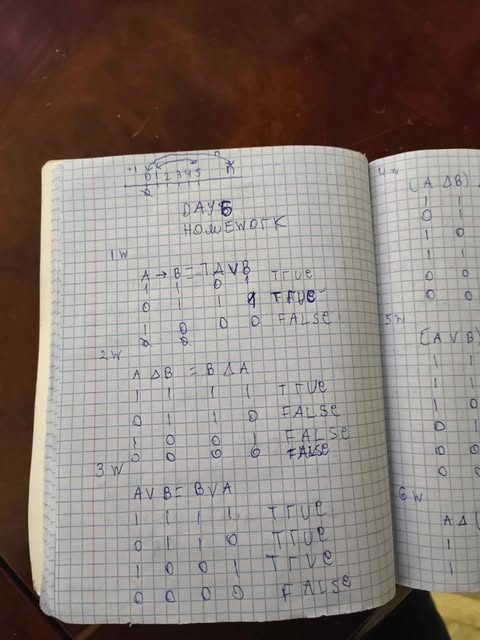 +1 0 1 2 3 4 5 n
0
DAY 5
HOMEWORK
1 W
A → B = ꓶA V B
1 1 0 1 TRUE
0 1 1 1 TRUE
1 0 0 0 FALSE
0 0
2 W
A Δ B = B Δ A
1 1 1 1 TRUE
0 1 1 0 FALSE
1 0 0 1 FALSE
0 0 0 0 FALSE
3 W
A V B = B V A
1 1 1 1 TRUE
0 1 1 0 TRUE
1 0 0 1 TRUE
0 0 0 0 FALSE
4 W
(A Δ B) Δ
1 1
0 1
1 0
1 1
0 0
0 0
5 W
(A V B)
1 1
1 1
1 0
0 1
0 0
0 0
6 W
A Δ (
1
1